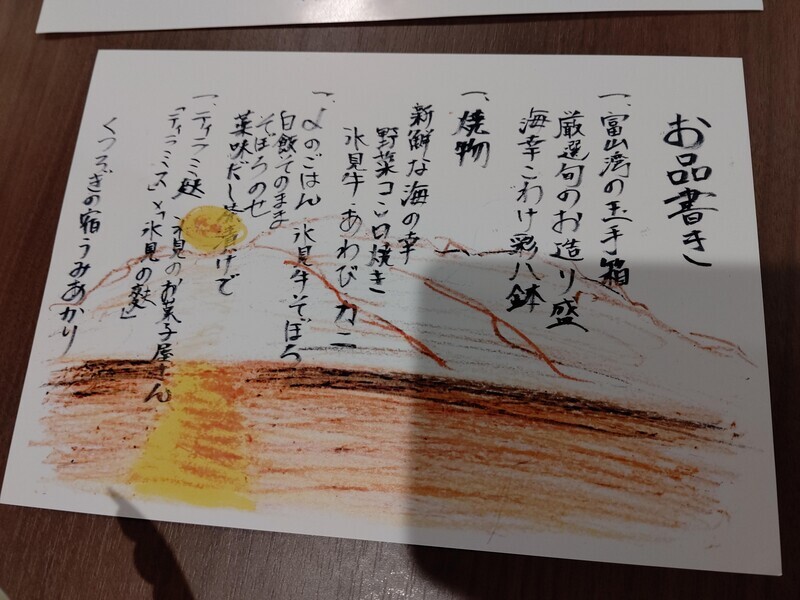 お品書き
一、富山湾の玉手箱
厳選旬のお造り盛
海幸こわけ彩八鉢
一、焼物
新鮮な海の幸
野菜コンロ焼き
氷見牛 あわび カニ
一、〆のごはん 氷見牛そぼろ
白飯そのまま
そぼろのせ
薬味だし茶漬けで
一、ティラミ麩 氷見のお菓子屋さん
「ティラミス」×「氷見の麩」
くつろぎの宿うみあかり